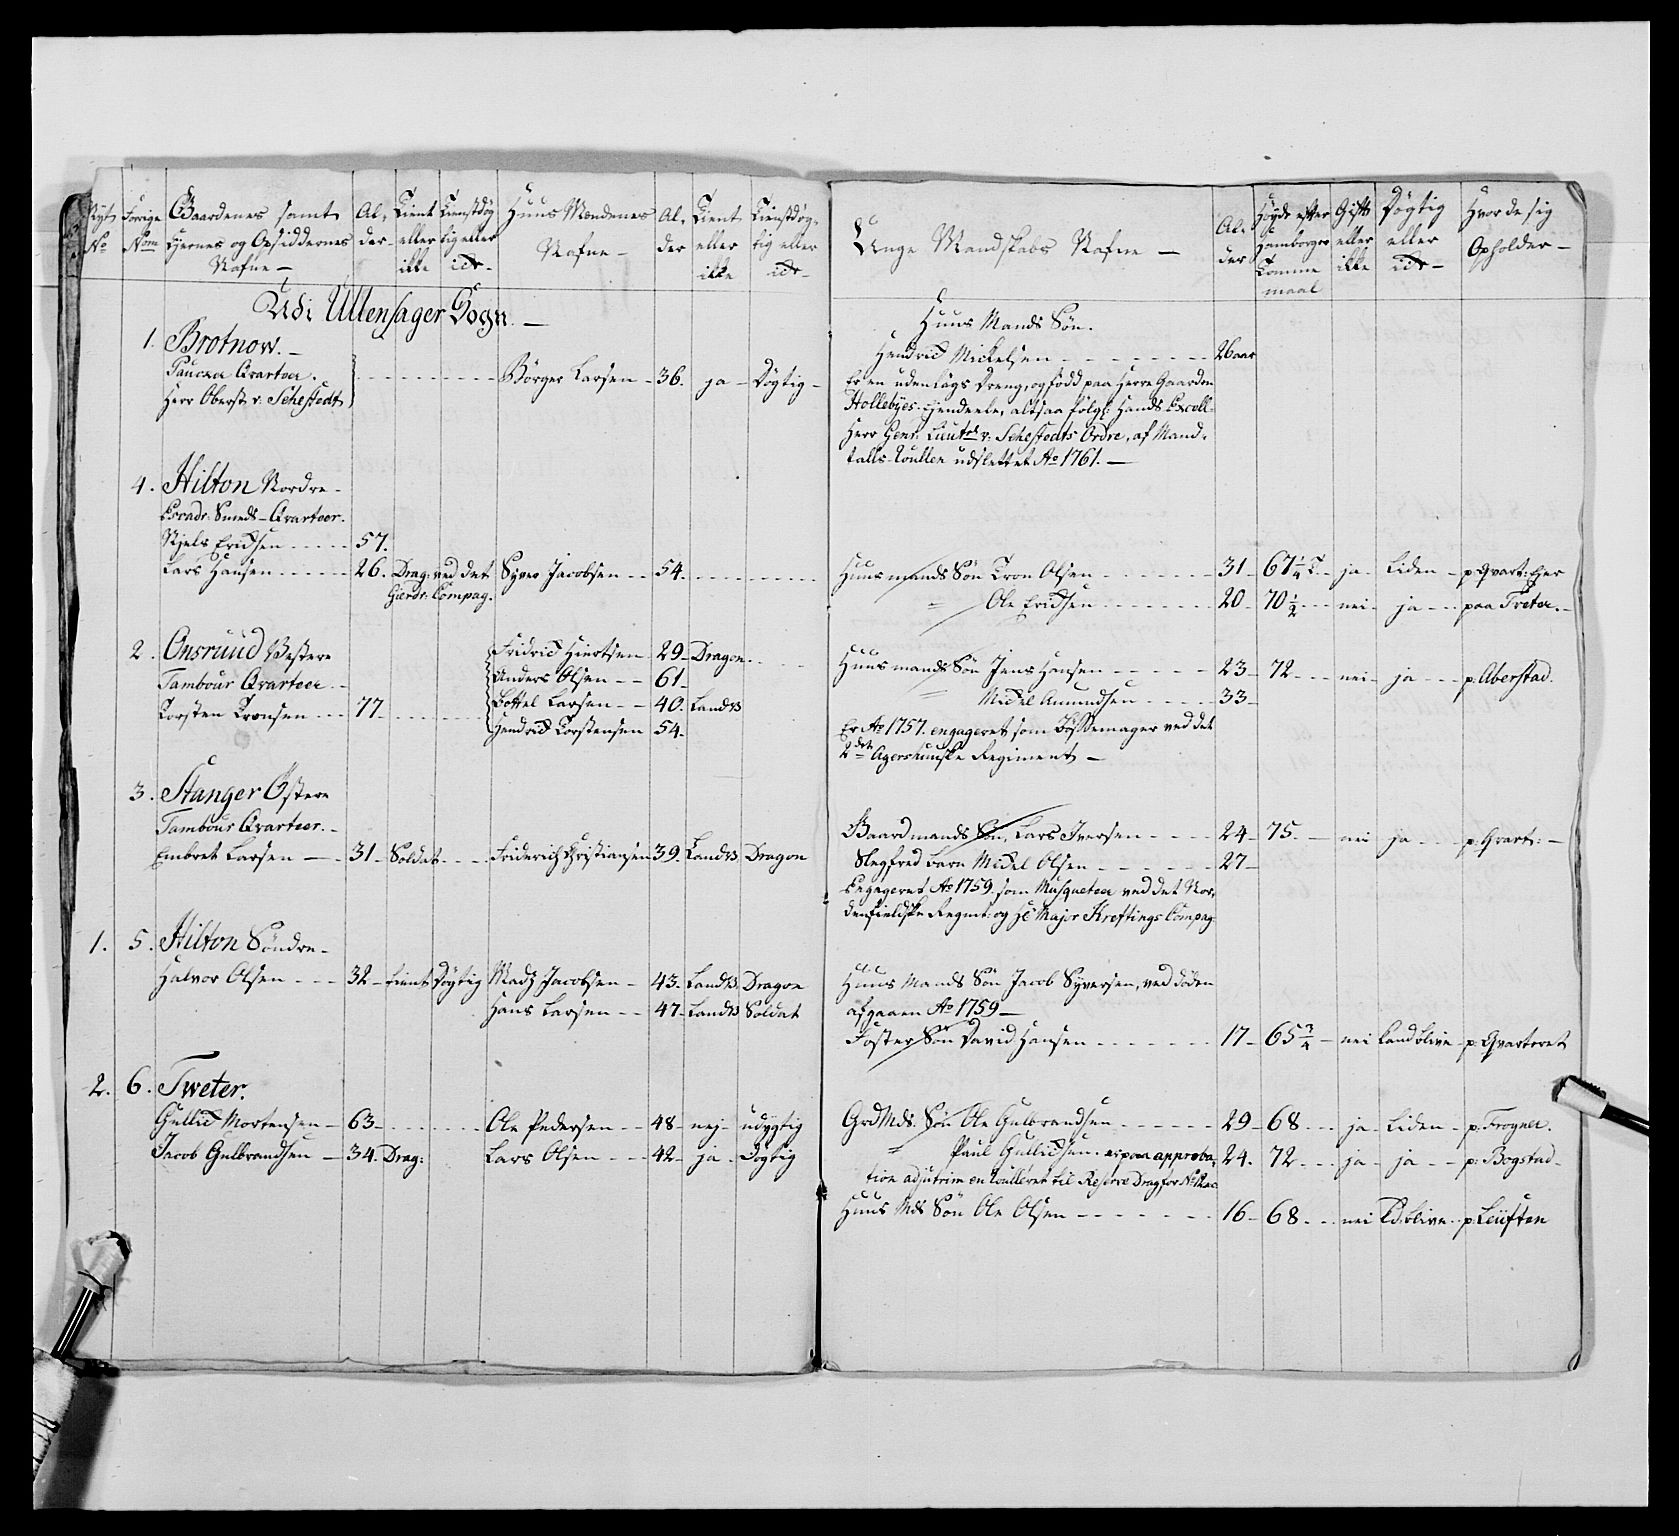 Nyt No
Forrige Nom
Gaardenes samt Ejernes og Opsiddernes Nafne —
Al, der
Tient eller ikke
Tienstdygtig eller icke —
Huus Mændenes Nafne —
Al, der
Tient eller ikke
Tienstdøgtig eller icke
Udi Ullensager Sogn. —
1. Brotnow. —
Pauker Qvarteer.
Herr Oberst v: Schestedt
Börger Larsen – 36. ja – Dögtig –
4. Hilton Nordre –
Escadr: Smeds – Qvarteer.
Niels Ericksen 57.
Lars Hansen 26. Drag: ved det Gierdr: Compag. Syver Jacobsen – – 54.
2. Onsruud Westere
Tambour Qvarteer –
Torsten Tronsen 77.
Fridrick Hiertsen 29 – Dragon
Anders Olsen – – 61 –
Bottel Larsen – – 40. Landv
Hendrick Torstensen 54.
3. Stanger Östere
Tambour Qvarteer. –
Embret Larsen – 31 – Soldat Friderich Christiansen 39. Landv. Dragon
1. 5. Hilton Söndre –
Halvor Olsen 32 – tient Dögtig Madz Jacobsen – 43 – Landv. Dragon
Hans Larsen – – 47 – Landv Soldat
2. 6. Tweter.
Gullick Mortensen – 63 – Ole Pedersen – – 48 – nej – udygtig
Jacob Gulbrandsen – 34. Drag: Lars Olsen 42 – ja – Dögtig
Unge Mandskabs Nafne —
Al, der
Höyde efter Hamborger Tomme maal
Gift eller ikke
Dögtig eller icke —
Hvor de sig Opholder —
Huus Mands Sön.
Hendrick Mickelsen 26 aar
Er en uden Lægs Dreng, og född paa Herre Gaarden
Hollebyes Ejendeele, altsaa fölgl: Hands Excell:
Herr Genr: Lieut v: Schestedts Ordre, af Mand-
talls Roullen udslettet Ao 1761. —
Huusmands Sön Tron Olsen 31 – 67 1/4 T. – ja – Liden – p: Qvart: Ejer
= Ole Ericksen 20 – 70 1/2 nei – ja paa Treter. –
Huusmands Sön Jens Hansen 23 – 72 nei – ja p: Aberstad.
= Mickel Amundsen 33 –
Er Ao 1757. engageret som Bössemager ved det
2det Agershuuske Regiment —
Gaardmands Sön, Lars Iversen 24 – 75. – nei – ja p: Qvart: –
Slegfred barn Mickel Olsen 27 –
Engageret Ao 1759. som Musqueteer ved det Nor-
denfieldske Regmt: og Hr Major Kreftings Compag
Huus Mands Sön Jacob Syversen, ved döden
afgaaen Ao 1759 —
Foster Sön David Hansen 17 – 65 3/4 – nei kand blive – p: Qvarteret
Grd Mds: Sön Ole Gulbrandsen 29 – 68 ja – Liden – p: Frogner.
= Paul Gullicksen. er paa approba- 24. 72 ja – ja p: Bogstad –
tion ad interim en roulleret til Reserve Drag for No
Huus Mds Sön Ole Olsen 16 – 68 nei Kd. blive p: Leüften